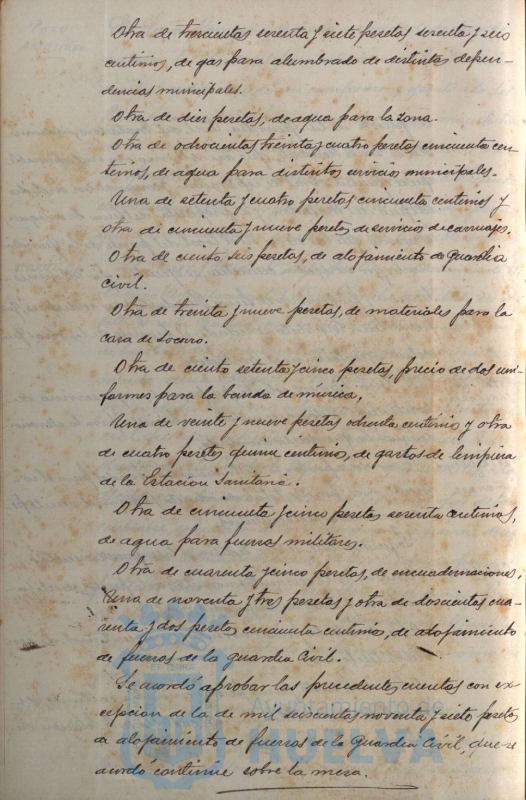 Otra de trescientas sesenta y siete pesetas sesenta y seis
centimos, de gas para alumbrado de distintas depen-
dencias municipales.
Otra de diez pesetas, de agua para la zona.
Otra de ochocientas treinta y cuatro pesetas cincuenta cen-
timos, de agua para distintos servicios municipales.
Una de setenta y cuatro pesetas cincuenta centimos y
otra de cincuenta y nueve pesetas de servicio de carruajes.
Otra de ciento seis pesetas, de alojamiento de Guardia
civil.
Otra de treinta y nueve pesetas, de materiales para la
casa de Socorro.
Otra de ciento setenta y cinco pesetas, precio de dos uni-
formes para la banda de música.
Una de veinte y nueve pesetas ochenta centimos y otra
de cuatro pesetas quince centimos, de gastos de limpieza
de la Estacion Sanitaria.
Otra de cincuenta y cinco pesetas sesenta centimos,
de agua para fuerzas militares.
Otra de cuarenta y cinco pesetas, de encuadernaciones.
Una de noventa y tres pesetas y otra de doscientas cua-
renta y dos pesetas cincuenta centimos, de alojamiento
de fuerzas de la guardia Civil.
Se acordó aprobar las precedentes cuentas con ex-
cepcion de la de mil seiscientas noventa y siete pesetas
de alojamiento de fuerzas de la Guardia Civil, que se
acordó continue sobre la mesa.
Ayuntamiento de
HUELVA